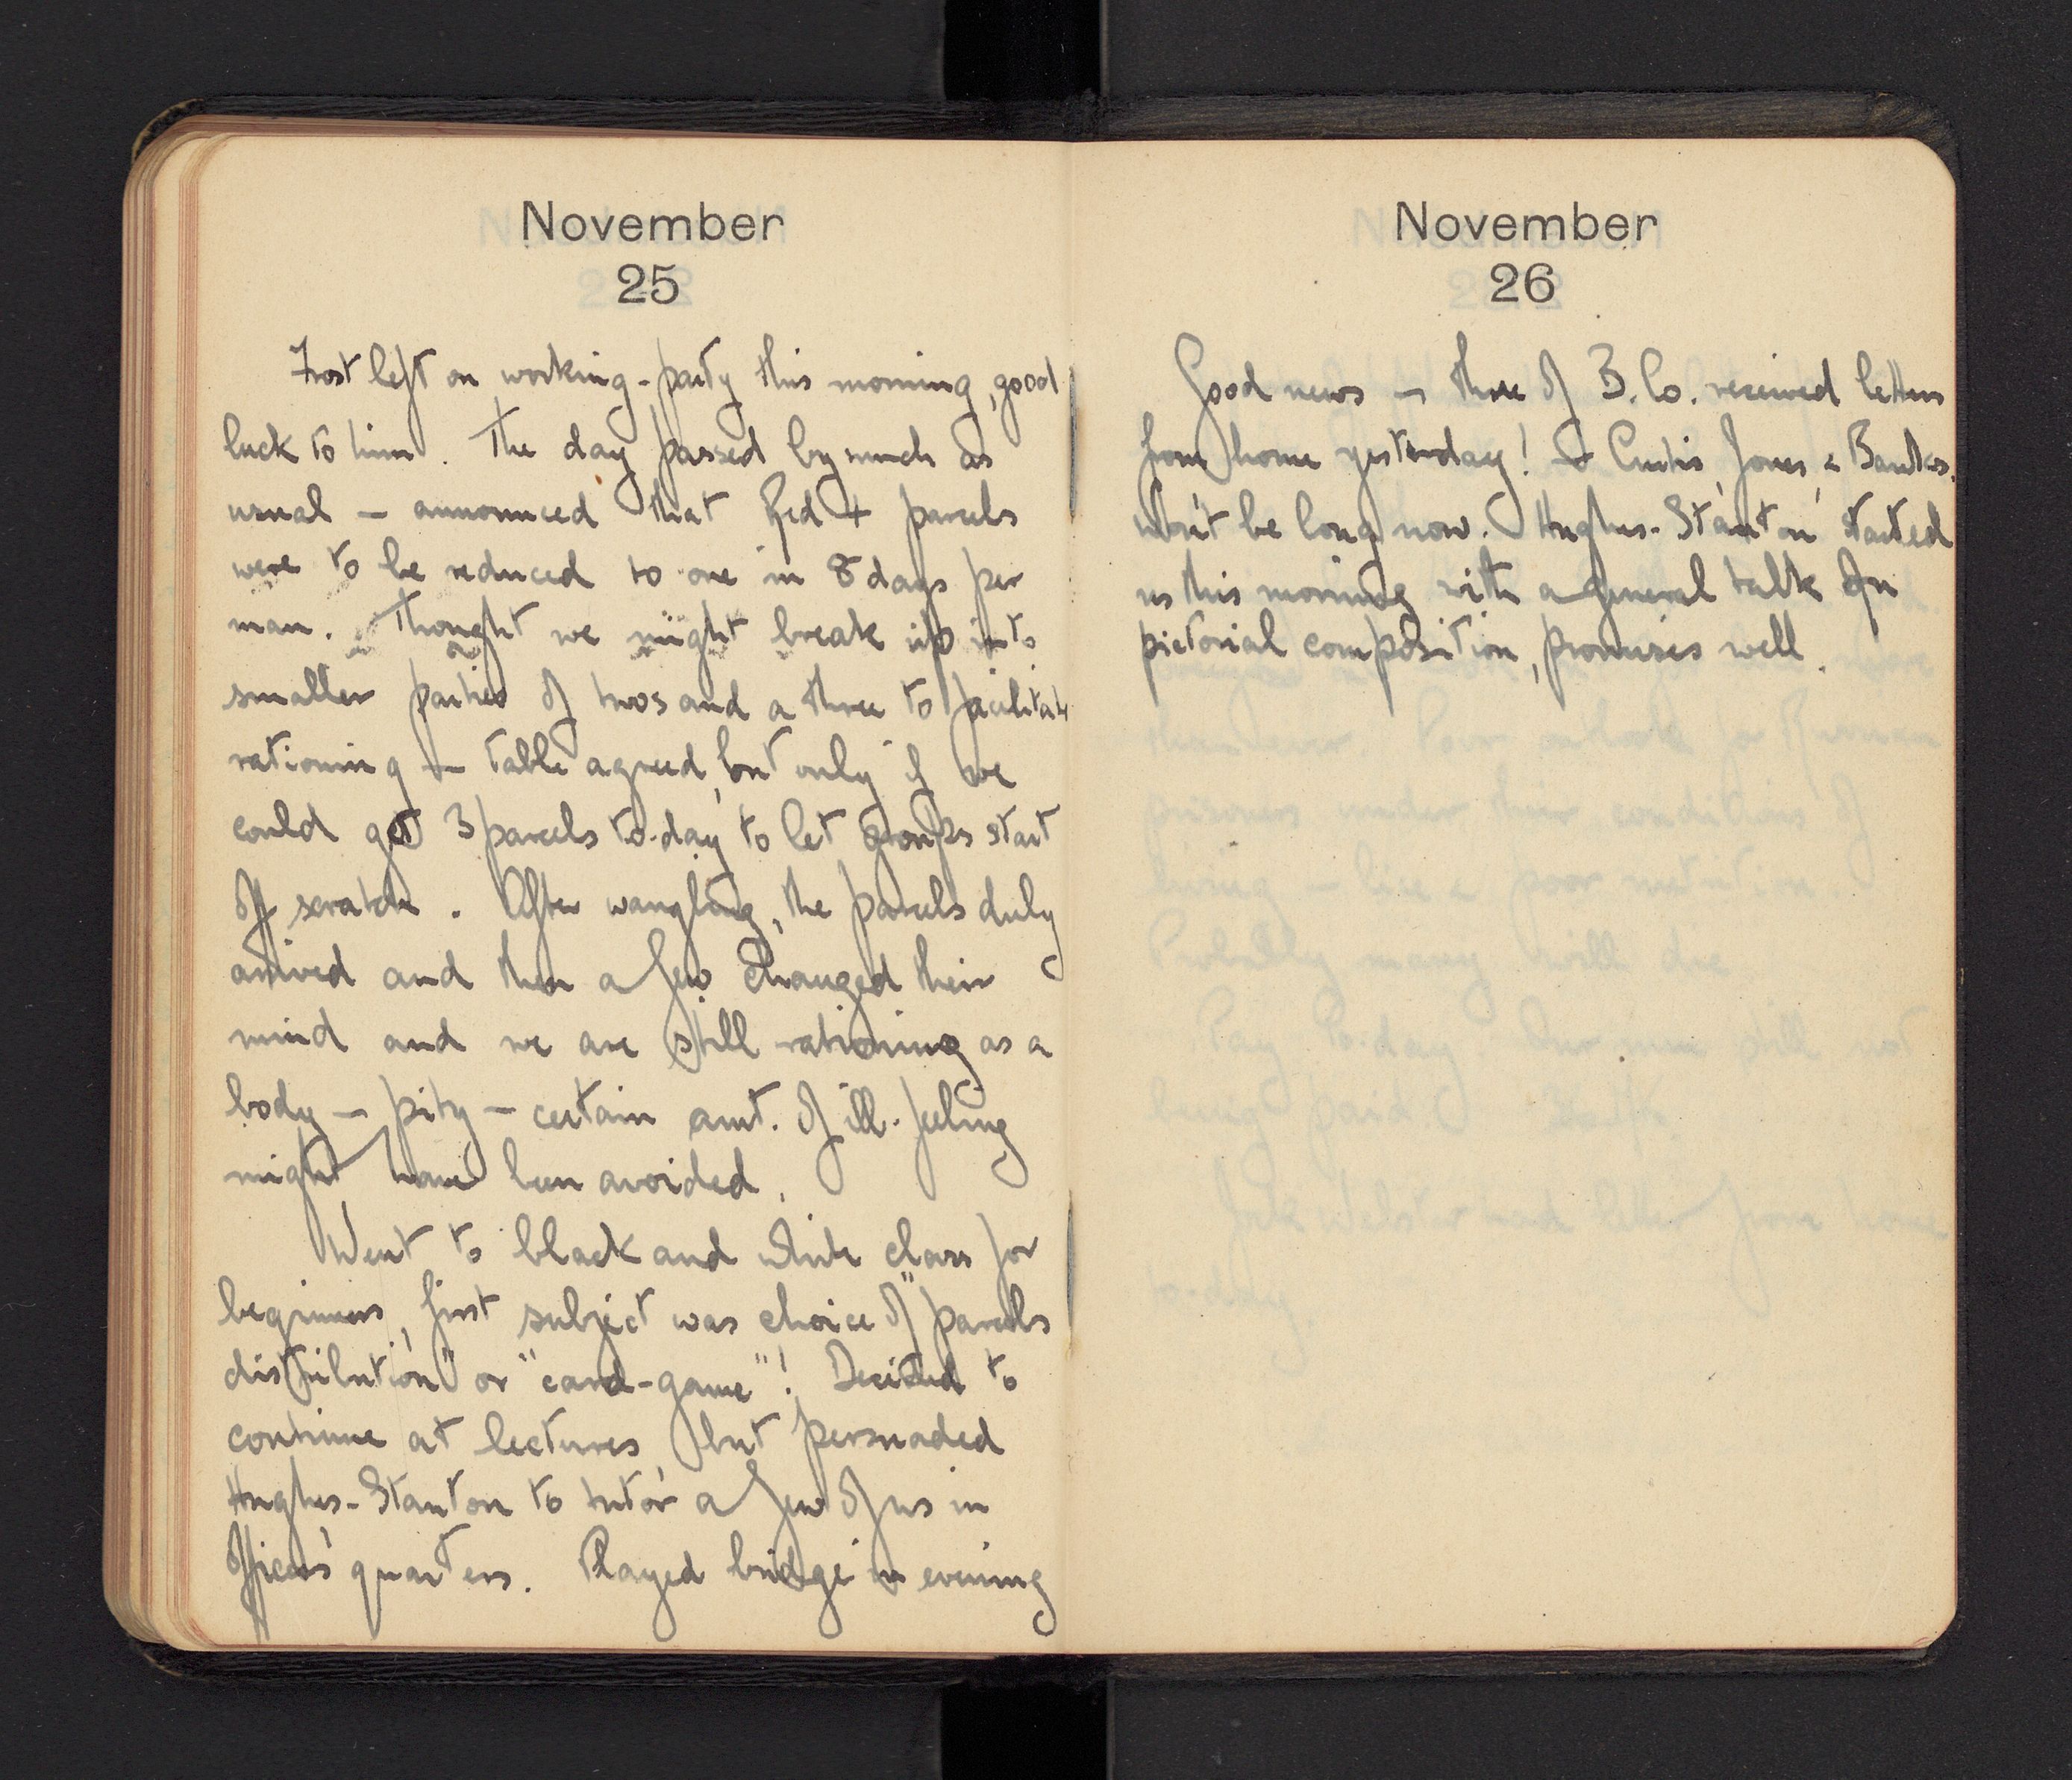 November
25
Frost left on working-party this morning, good
luck to him. The day passed by much as
usual — announced that Red + parcels
were to be reduced to one in 8 days per
man. Thought we might break up into
smaller parties of twos and a three to facilitate
rationing — table agreed, but only if we
could get 3 parcels to-day to let groups start
off scratch. After wangling, the parcels duly
arrived and then a few changed their
mind and we are still rationing as a
body — pity — certain amt. of ill-feeling
might have been avoided.
Went to black and white class for
beginners, first subject was choice of "parcels
distribution" or "card-game"! Decided to
continue at lectures, but persuaded
Hughes-Stanton to tutor a few of us in
officers' quarters. Played bridge in evening
November
26
Good news — three of B. Co. received letters
from home yesterday! — Curtis, Jones, & Banks.
Won't be long now. Hughes-Stanton started
us this morning with a general talk on
pictorial composition, promises well.